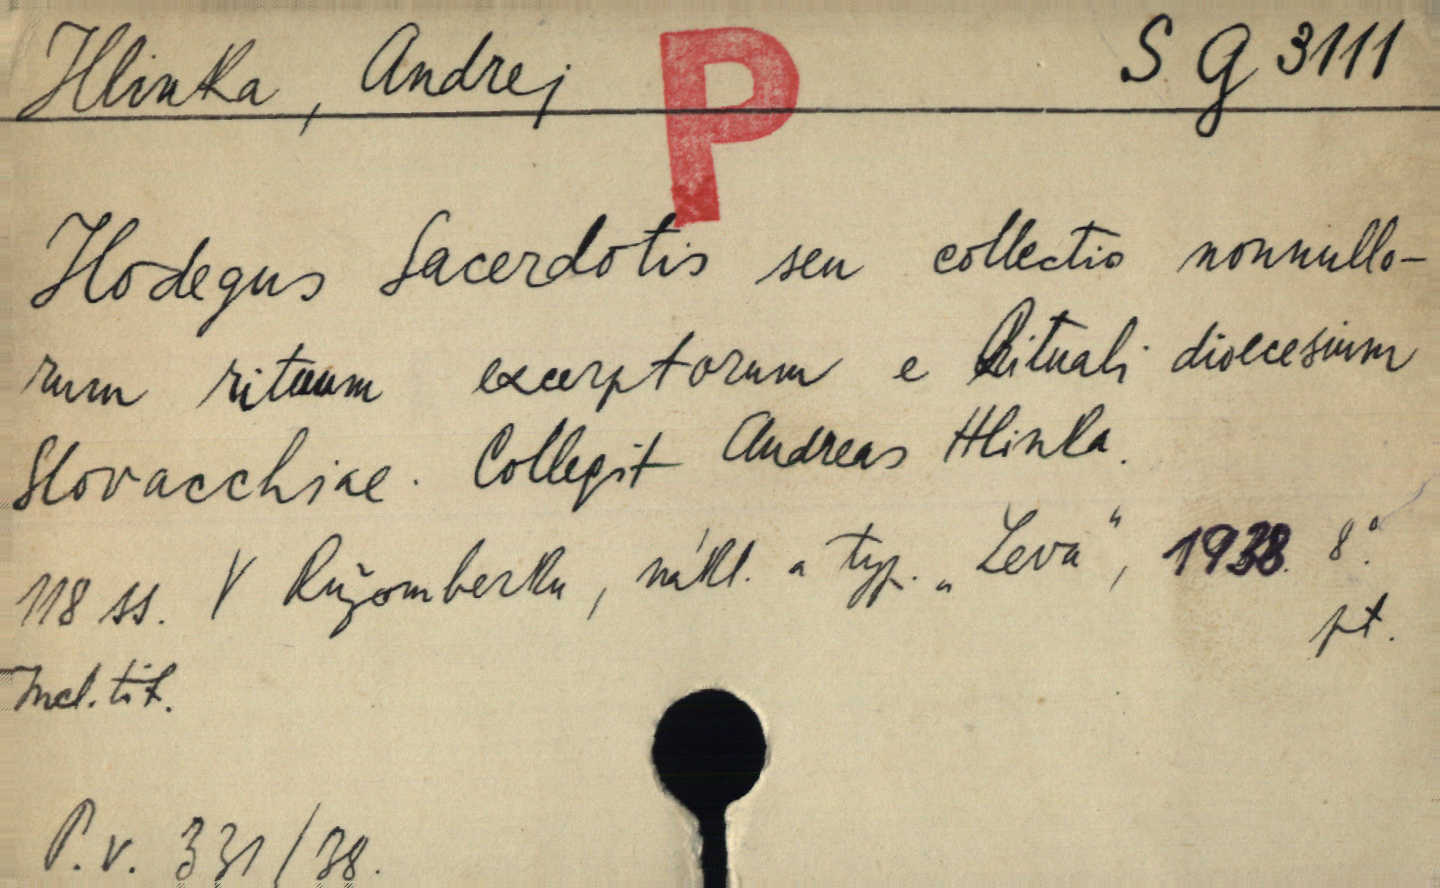 Hlinka, Andrej P S G 3111
Hodegus Sacerdotis seu collectio nonnullo-
rum rituum excerptorum e Rituali dioecesium
Slovacchiae. Collegit Andreas Hlinka.
118 ss. V Ružomberku, nákl. a typ. „Leva", 1938. 8°.
pt.
Incl. tit.
P. v. 331/38.